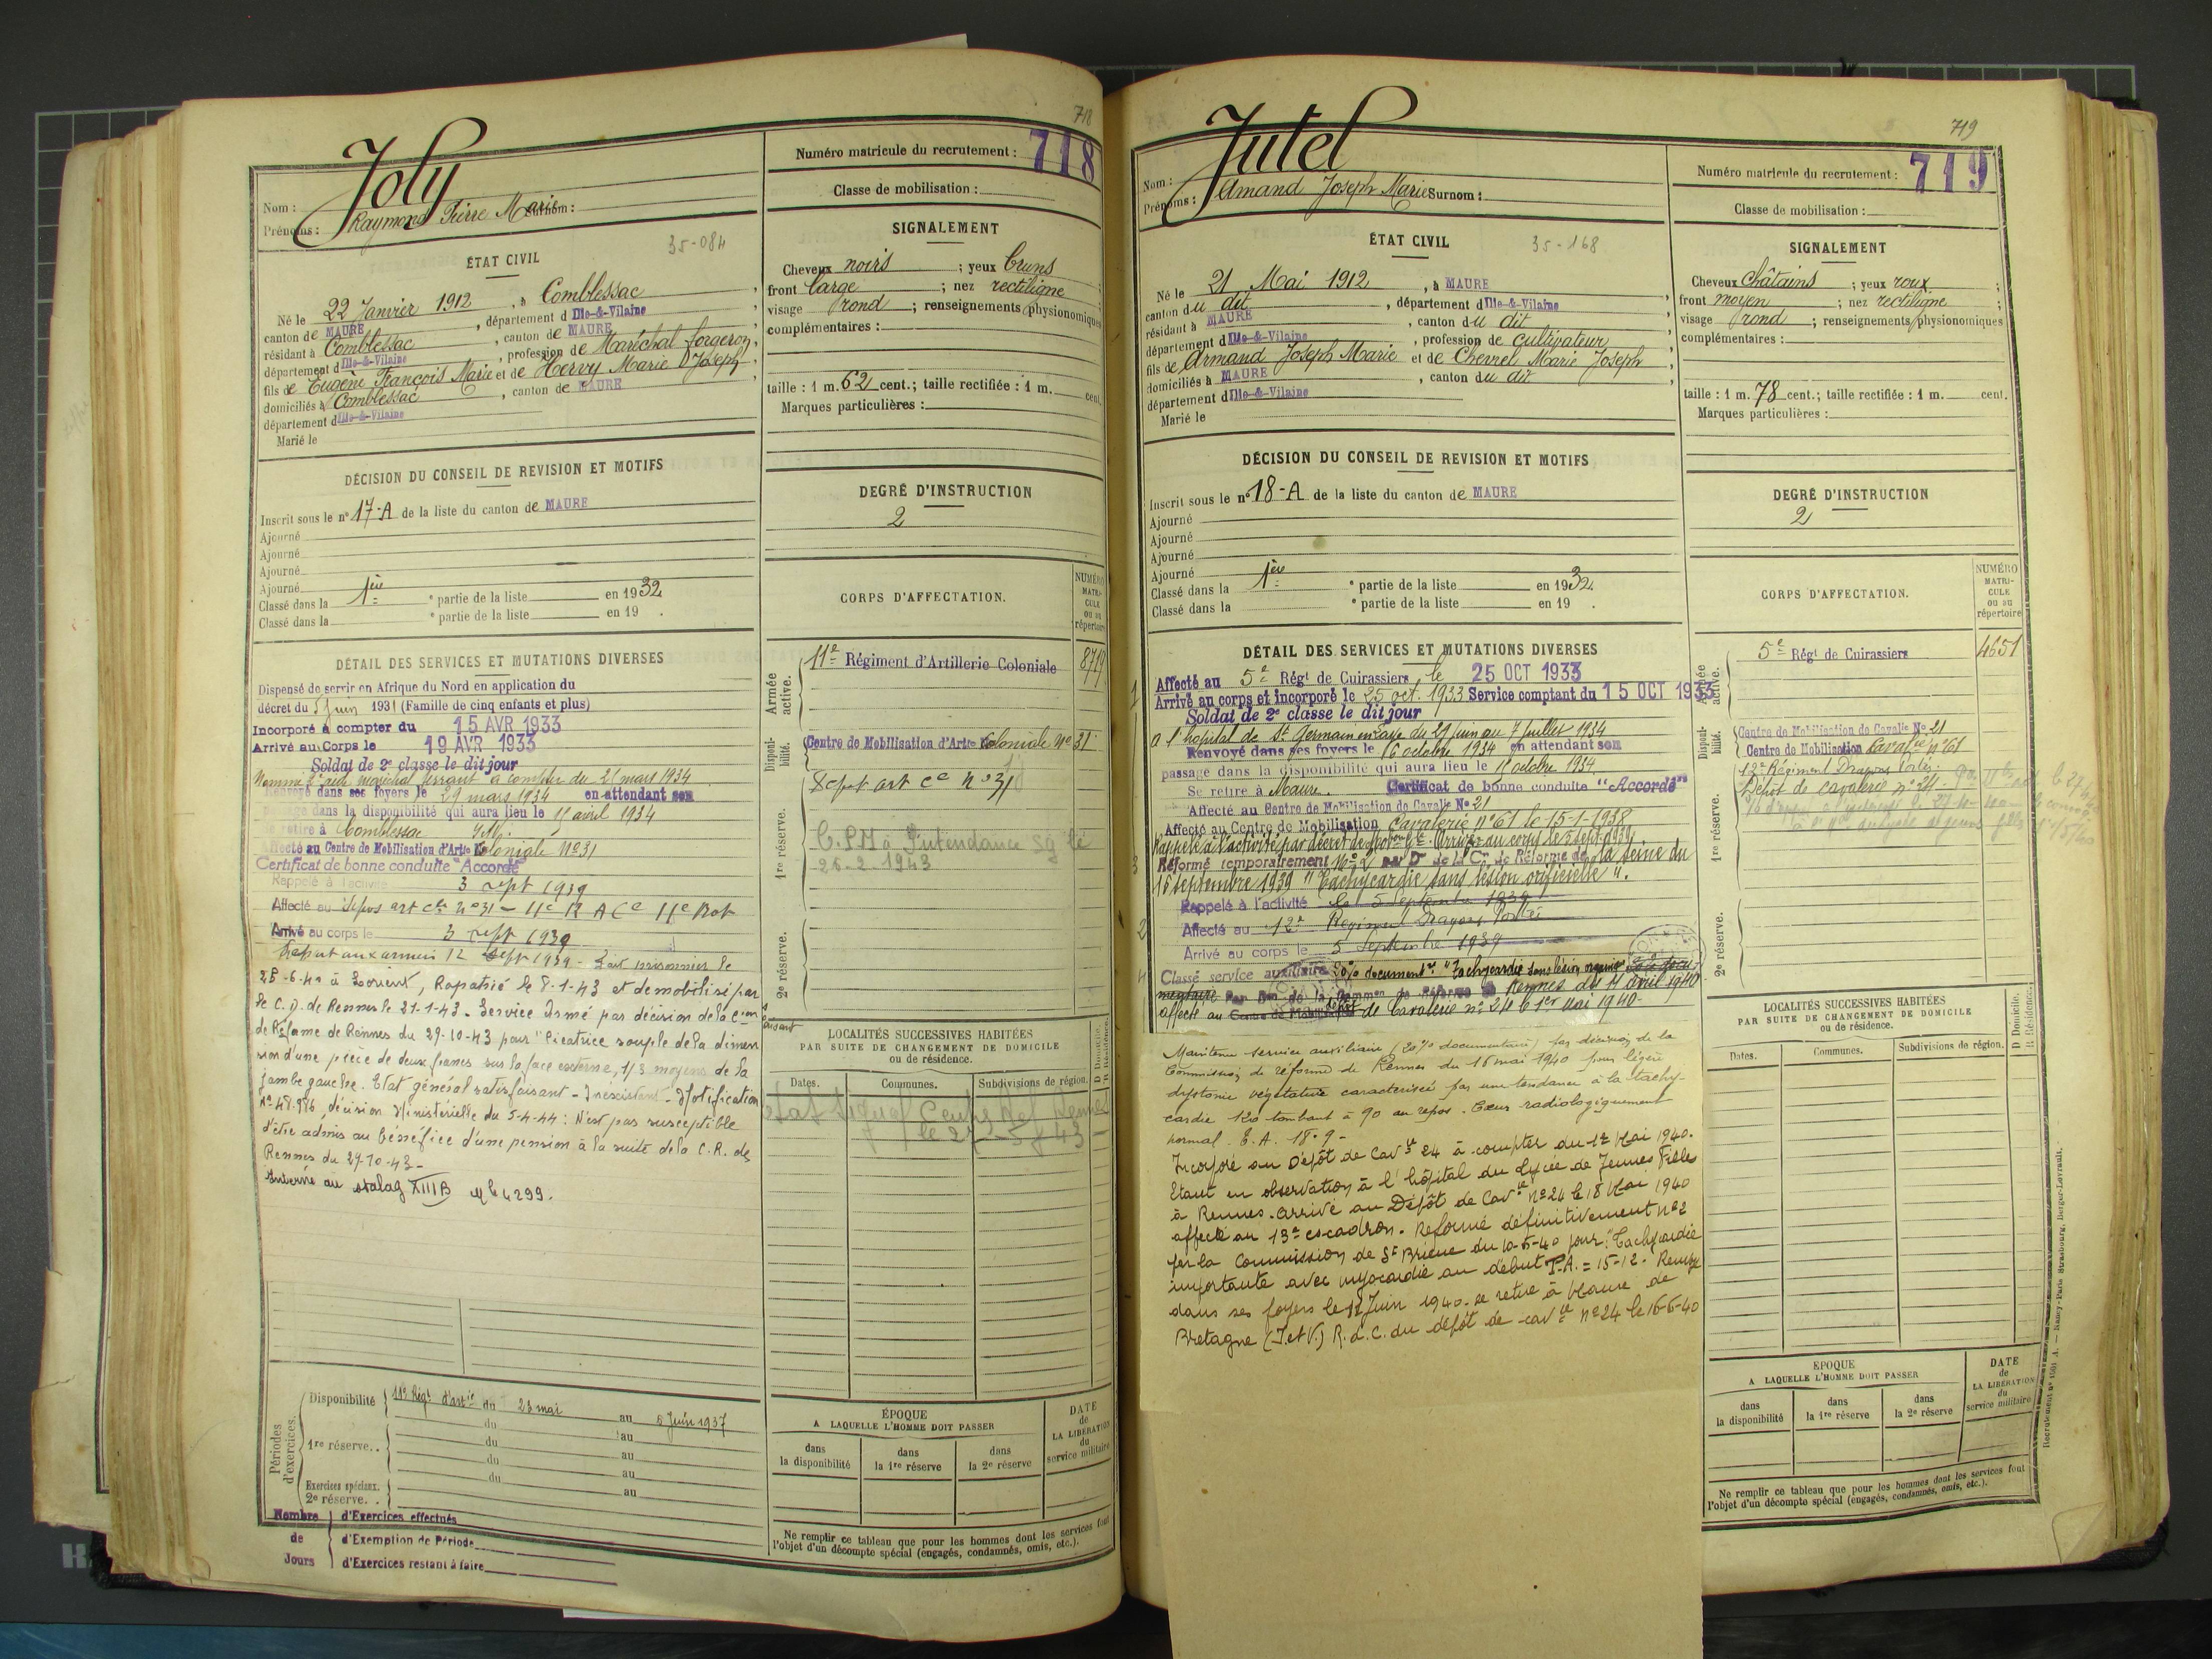 718
Joly
Nom :
Prénoms : Raymond Pierre Marie Surnom :
Numéro matricule du recrutement : 718
Classe de mobilisation :
35-084
ÉTAT CIVIL
Né le 22 Janvier 1912, à Comblessac,
canton de MAURE, département d Ille-&-Vilaine
résidant à Comblessac, canton de MAURE
département d Ille-&-Vilaine, profession de Maréchal forgeron,
fils de Eugène François Marie et de Hervy Marie Joseph
domiciliés à Comblessac, canton de MAURE
département d Ille-&-Vilaine
Marié le
SIGNALEMENT
Cheveux noirs ; yeux bruns
front large ; nez rectiligne
visage rond ; renseignements physionomiques
complémentaires :
taille : 1 m. 62 cent.; taille rectifiée : 1 m. cent.
Marques particulières :
DÉCISION DU CONSEIL DE REVISION ET MOTIFS
Inscrit sous le n° 17-A de la liste du canton de MAURE
Ajourné
Ajourné
Ajourné
Ajourné
Classé dans la 1ère e partie de la liste en 1932
Classé dans la e partie de la liste en 19 .
DEGRÉ D'INSTRUCTION
2
DÉTAIL DES SERVICES ET MUTATIONS DIVERSES
Dispensé de servir en Afrique du Nord en application du
décret du 5 Juin 1931 (Famille de cinq enfants et plus)
Incorporé à compter du 15 AVR 1933
Arrivé au Corps le 19 AVR 1933
Soldat de 2e classe le dit jour
maréchal ferrant à compter du 21 mars 1934
Renvoyé dans ses foyers le 29 mars 1934 en attendant son
passage dans la disponibilité qui aura lieu le 15 avril 1934
Se retire à Comblessac
Affecté au Centre de Mobilisation d'Artie Coloniale N° 31
Certificat de bonne conduite "Accordé"
Rappelé à l'activité 3 sept 1939
Affecté au Dépôt art cle n° 31 - 11e R A Ce
Arrivé au corps le 3 sept 1939
Départ aux armées 12 sept 1939 - Fait prisonnier le
à Lorient, Rapatrié le 8-1-43 et démobilisé par
le C. D. de Rennes le 21-1-43 - Service Armé par décision de la Con
de Réforme de Rennes du 29-10-43 pour "Cicatrice souple de la dimen
sion d'une pièce de deux francs sur la face externe, 1/3 moyen de la
jambe gauche. Etat général satisfaisant - Inexistant - Notification
N° 48.986, décision Ministérielle du 5-4-44 : N'est pas susceptible
d'être admis au bénéfice d'une pension à la suite de la C. R. de
Rennes du 29-10-43 -
Interné au stalag XIII B Mle 4299.
CORPS D'AFFECTATION.
NUMÉRO MATRICULE ou au répertoire
Armée active.
11e Régiment d'Artillerie Coloniale 8719
Disponibilité.
Centre de Mobilisation d'Artie Coloniale N° 31
Dépôt art ce n° 31
1re réserve.
Intendance
26-2-1943
2e réserve.
LOCALITÉS SUCCESSIVES HABITÉES
PAR SUITE DE CHANGEMENT DE DOMICILE
ou de résidence.
D. Domicile.
R. Résidence.
Dates.
Communes.
Subdivisions de région.
Périodes d'exercices.
Disponibilité 11e Régt d'artie du 23 mai au 5 Juin 1937
du au
1re réserve.. du au
du au
Exercices spéciaux. du au
2e réserve. . au
Nombre de Jours
d'Exercices effectués
d'Exemption de Période
d'Exercices restant à faire
ÉPOQUE
A LAQUELLE L'HOMME DOIT PASSER
dans la disponibilité
dans la 1re réserve
dans la 2e réserve
DATE de LA LIBÉRATION du service militaire
Ne remplir ce tableau que pour les hommes dont les services font
l'objet d'un décompte spécial (engagés, condamnés, omis, etc.).
719
Jutel
Nom :
Prénoms : Armand Joseph Marie Surnom :
Numéro matricule du recrutement : 719
Classe de mobilisation :
35-168
ÉTAT CIVIL
Né le 21 Mai 1912, à MAURE
canton du dit, département d Ille-&-Vilaine
résidant à MAURE, canton du dit
département d Ille-&-Vilaine, profession de cultivateur
fils de Armand Joseph Marie et de Chevrel Marie Joseph
domiciliés à MAURE, canton du dit
département d Ille-&-Vilaine
Marié le
SIGNALEMENT
Cheveux châtains ; yeux roux ;
front moyen ; nez rectiligne
visage rond ; renseignements physionomiques
complémentaires :
taille : 1 m. 78 cent.; taille rectifiée : 1 m. cent.
Marques particulières :
DÉCISION DU CONSEIL DE REVISION ET MOTIFS
Inscrit sous le n° 18-A de la liste du canton de MAURE
Ajourné
Ajourné
Ajourné
Ajourné
Classé dans la 1ère e partie de la liste en 1932
Classé dans la e partie de la liste en 19 .
DEGRÉ D'INSTRUCTION
2
DÉTAIL DES SERVICES ET MUTATIONS DIVERSES
Affecté au 5e Régt de Cuirassiers le 25 OCT 1933
1 Arrivé au corps et incorporé le 25 oct. 1933 Service comptant du 15 OCT 1933
Soldat de 2e classe le dit jour
A l'hopital de St Germain en Laye du 29 juin au 7 Juillet 1934
Renvoyé dans ses foyers le 16 octobre 1934 en attendant son
passage dans la disponibilité qui aura lieu le 15 octobre 1934
Se retire à Maure. Certificat de bonne conduite "Accordé"
Affecté au Centre de Mobilisation de Cavalie N° 21
Affecté au Centre de Mobilisation Cavalerie n° 61 le 15-1-1938
Rappelé à l'activité par décret de Mobon Gle. Arrivé au corps le 5 sept. 1939
3 Réformé temporairement N° 2 par Don de la Con de Réforme de la Seine du
16 Septembre 1939 "Tachycardie sans lésion orificielle".
Rappelé à l'activité le 5 Septembre 1939
2 Affecté au 12e Régiment Dragons Portés
Arrivé au corps le 5 Septembre 1939
4 Classé service auxiliaire 20% documentre "Tachycardie sans lésion
par Don de la Common de Réforme de Rennes du 11 avril 1940
affecté au dépôt de Cavalerie n° 24 le 1er Mai 1940 -
Maintenu service auxiliaire (20% documentaire) par décision de la
Commission de réforme de Rennes du 16 mai 1940 pour légère
dystonie végétative caractérisée par une tendance à la tachy-
cardie 120 tombant à 90 au repos. Cœur radiologiquement
normal. T. A. 18.9 -
Incorporé au Dépôt de Cavie 24 à compter du 1er Mai 1940.
Etant en observation à l'hôpital du Lycée de Jeunes Filles
à Rennes. Arrivé au Dépôt de Cavie N° 24 le 18 Mai 1940
affecté au 13e escadron. Réformé définitivement n° 2
par la Commission de St Brieuc du 10-6-40 pour : "Tachycardie
importante avec myocardie au début T.A. = 15-12. Renvoyé
dans ses foyers le 12 Juin 1940. Se retire à Maure de
Bretagne (I. et V.) R. d. C. du dépôt de cavie n° 24 le 16-6-40
CORPS D'AFFECTATION.
NUMÉRO MATRICULE ou au répertoire
Armée active.
5e Régt de Cuirassiers 4651
Disponibilité.
Centre de Mobilisation de Cavalie N° 21
Centre de Mobilisation Cavalie n° 61
1re réserve.
12e Régiment Dragons Portés.
Dépôt de cavalerie n° 24
2e réserve.
LOCALITÉS SUCCESSIVES HABITÉES
PAR SUITE DE CHANGEMENT DE DOMICILE
ou de résidence.
D. Domicile.
R. Résidence.
Dates.
Communes.
Subdivisions de région.
ÉPOQUE
A LAQUELLE L'HOMME DOIT PASSER
dans la disponibilité
dans la 1re réserve
dans la 2e réserve
DATE de LA LIBÉRATION du service militaire
Ne remplir ce tableau que pour les hommes dont les services font
l'objet d'un décompte spécial (engagés, condamnés, omis, etc.).
Nancy-Paris-Strasbourg, Berger-Levrault.